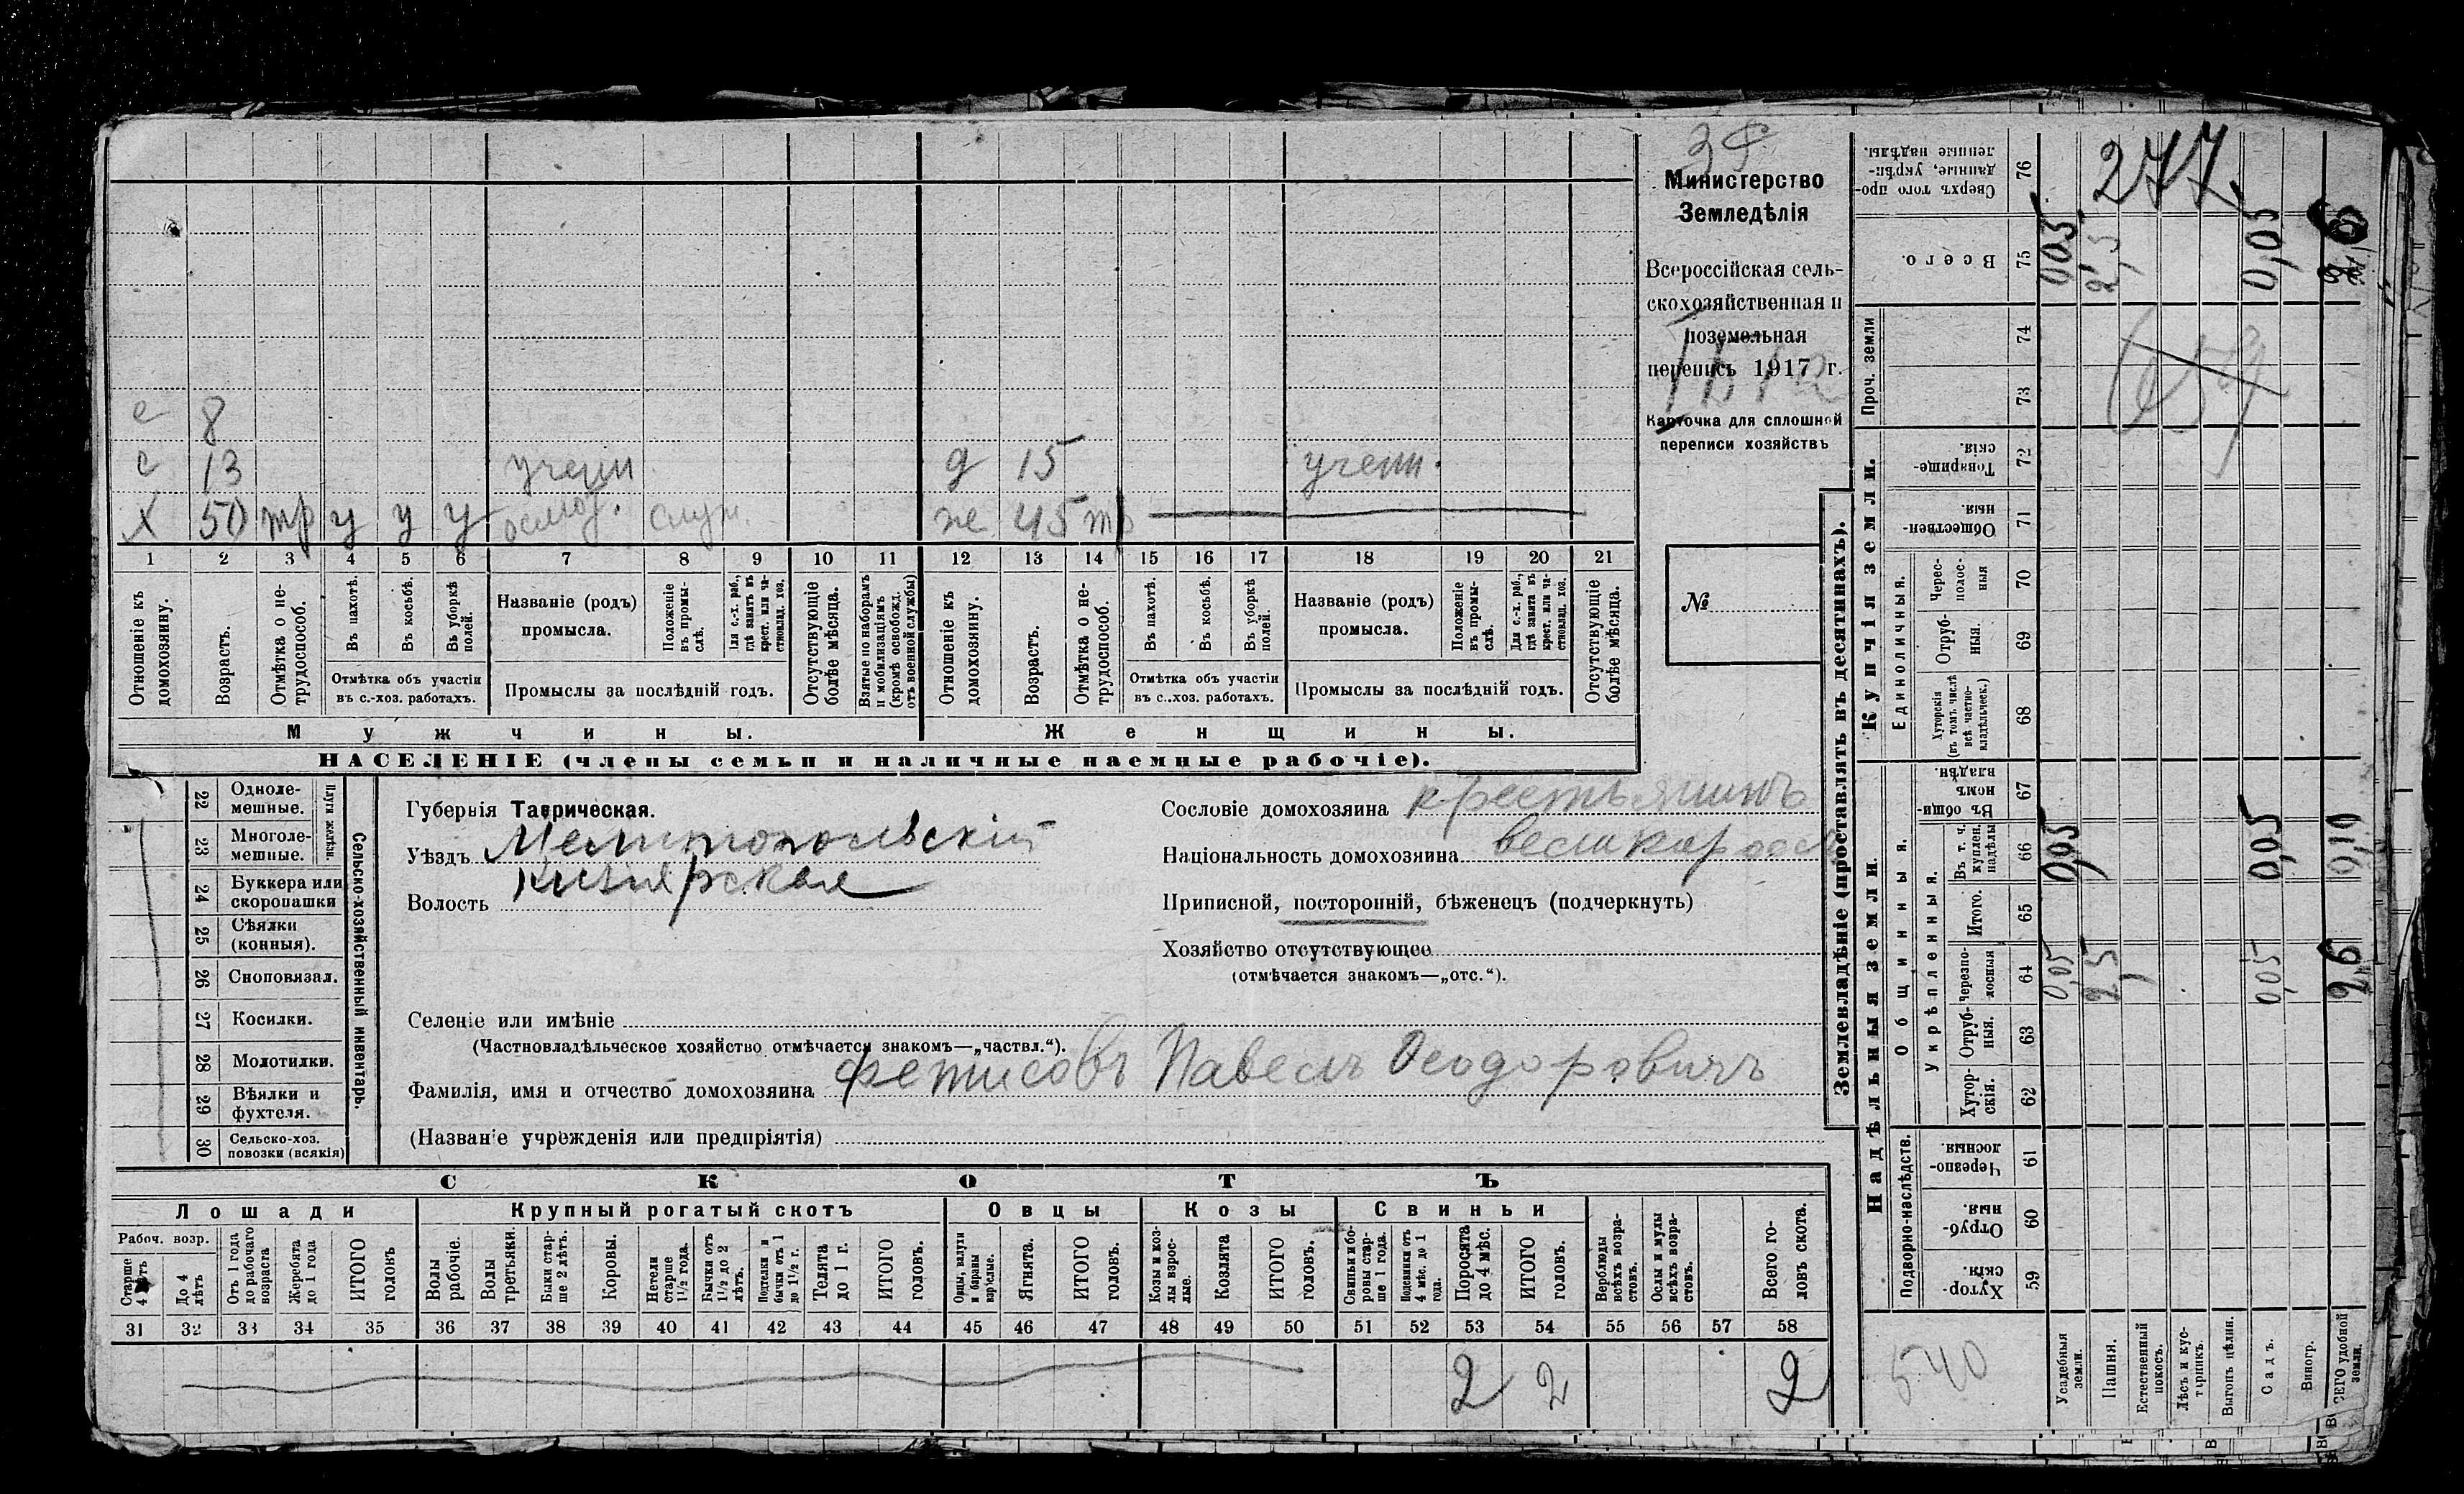 277
Министерство
Земледѣлія
Всероссійская сель-
скохозяйственная и
поземельная
перепись 1917 г.
Карточка для сплошной
переписи хозяйствъ
№
с 8
с 13 учени д 15 учени.
х 50 тр у у у служ. же 45 тр
1 2 3 4 5 6 7 8 9 10 11 12 13 14 15 16 17 18 19 20 21
Отношеніе къ домохозяину.
Возрастъ.
Отмѣтка о не-трудоспособ.
Въ пахотѣ.
Въ косьбѣ.
Въ уборкѣ полей.
Отмѣтка объ участіи
въ с.-хоз. работахъ.
Названіе (родъ)
промысла.
Положеніе въ промы-слѣ.
Для с.-х. раб., гдѣ занятъ въ крест. или ча-стновлад. хоз.
Промыслы за послѣдній годъ.
Отсутствующіе болѣе мѣсяца.
Взятые по наборамъ и мобилизаціямъ (кромѣ освобожд. отъ военной службы)
Отношеніе къ домохозяину.
Возрастъ.
Отмѣтка о не-трудоспособ.
Въ пахотѣ.
Въ косьбѣ.
Въ уборкѣ полей.
Отмѣтка объ участіи
въ с.-хоз. работахъ.
Названіе (родъ)
промысла.
Положеніе въ промы-слѣ.
Для с.-х. раб., гдѣ занята въ крест. или ча-стновлад. хоз.
Промыслы за послѣдній годъ.
Отсутствующіе болѣе мѣсяца.
Мужчины. Женщины.
НАСЕЛЕНІЕ (члены семьи и наличные наемные рабочіе).
Сельско-хозяйственный инвентарь.
Плуги желѣзн.
22 Одноле-мешные.
23 Многоле-мешные.
24 Буккера или скоропашки
25 Сѣялки (конныя).
26 Сноповязал.
27 Косилки.
28 Молотилки.
29 Вѣялки и фухтеля.
30 Сельско-хоз. повозки (всякія)
Губернія Таврическая.
Уѣздъ Мелитопольскій
Волость Кизіярская
Сословіе домохозяина крестьянинъ
Національность домохозяина великоросс
Приписной, посторонній, бѣженецъ (подчеркнуть)
Хозяйство отсутствующее
(отмѣчается знакомъ—„отс.“).
Селеніе или имѣніе
(Частновладѣльческое хозяйство отмѣчается знакомъ—„частвл.“).
Фамилія, имя и отчество домохозяина Фетисовъ Павелъ Ѳеодоровичъ
(Названіе учрежденія или предпріятія)
СКОТЪ
Лошади Крупный рогатый скотъ Овцы Козы Свиньи
Рабоч. возр.
Старше 4 лѣтъ
До 4 лѣтъ
Отъ 1 года до рабочаго возраста
Жеребята до 1 года
ИТОГО головъ
Волы рабочіе.
Волы третьяки.
Быки стар-ше 2 лѣтъ.
Коровы.
Нетели старше 1½ года.
Бычки отъ 1½ до 2 лѣтъ.
Подтелки и бычки отъ 1 до 1½ г.
Телята до 1 г.
ИТОГО головъ.
Овцы, валухи и бараны взрослые.
Ягнята.
ИТОГО головъ.
Козы и коз-лы взрос-лые.
Козлята
ИТОГО головъ.
Свиньи и бо-ровы стар-ше 1 года.
Подсвинки отъ 4 мѣс. до 1 года.
Поросята до 4 мѣс.
ИТОГО головъ.
Верблюды всѣхъ возра-стовъ.
Ослы и мулы всѣхъ возра-стовъ.
Всего го-ловъ скота.
31 32 33 34 35 36 37 38 39 40 41 42 43 44 45 46 47 48 49 50 51 52 53 54 55 56 57 58
2 2 2
Землевладѣніе (проставлять въ десятинахъ).
Надѣльныя земли. Купчія земли.
Проч. земли
Подворно-наслѣдств.
Общинныя.
Укрѣпленныя.
Единоличныя.
Хутор-скія. 59
Отруб-ныя. 60
Черезпо-лосныя 61
Хутор-скія. 62
Отруб-ныя. 63
черезпо-лосныя 64
Итого. 65
Въ т. ч. куплен. надѣлы 66
Въ общи-номъ владѣн. 67
Хуторскія (въ томъ числѣ всѣ частно-владѣльчек.) 68
Отруб-ныя. 69
Черес-полос-ныя 70
Обществен-ныя. 71
Товарище-скія. 72
73
74
Всего. 75
Сверхъ того про-данные, укрѣп-ленные надѣлы. 76
540
Усадебныя земли. 0,05 0,05 0,05
Пашня. 2,5 2,5
Естественный покосъ.
Лѣсъ и кус-тарникъ.
Выгонъ цѣлин.
Садъ. 0,05 0,05 0,05
Виногр.
ВСЕГО удобной земли. 2,6 0,10